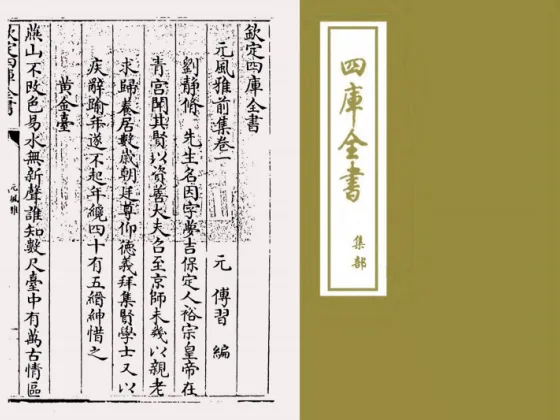 欽定四庫全書
元風雅前集卷一
元 傅習 編
劉靜脩 先生名因字夢吉保定人裕宗皇帝在
青宮聞其賢以資善大夫召至京師未幾以親老
求歸養居數歲朝廷尊仰德義拜集賢學士又以
疾辭踰年遂不起年纔四十有五縉紳惜之
黃金臺
燕山不改色易水無新聲誰知數尺臺中有萬古情區
欽定四庫全書
元風雅
一
四庫全書
集部